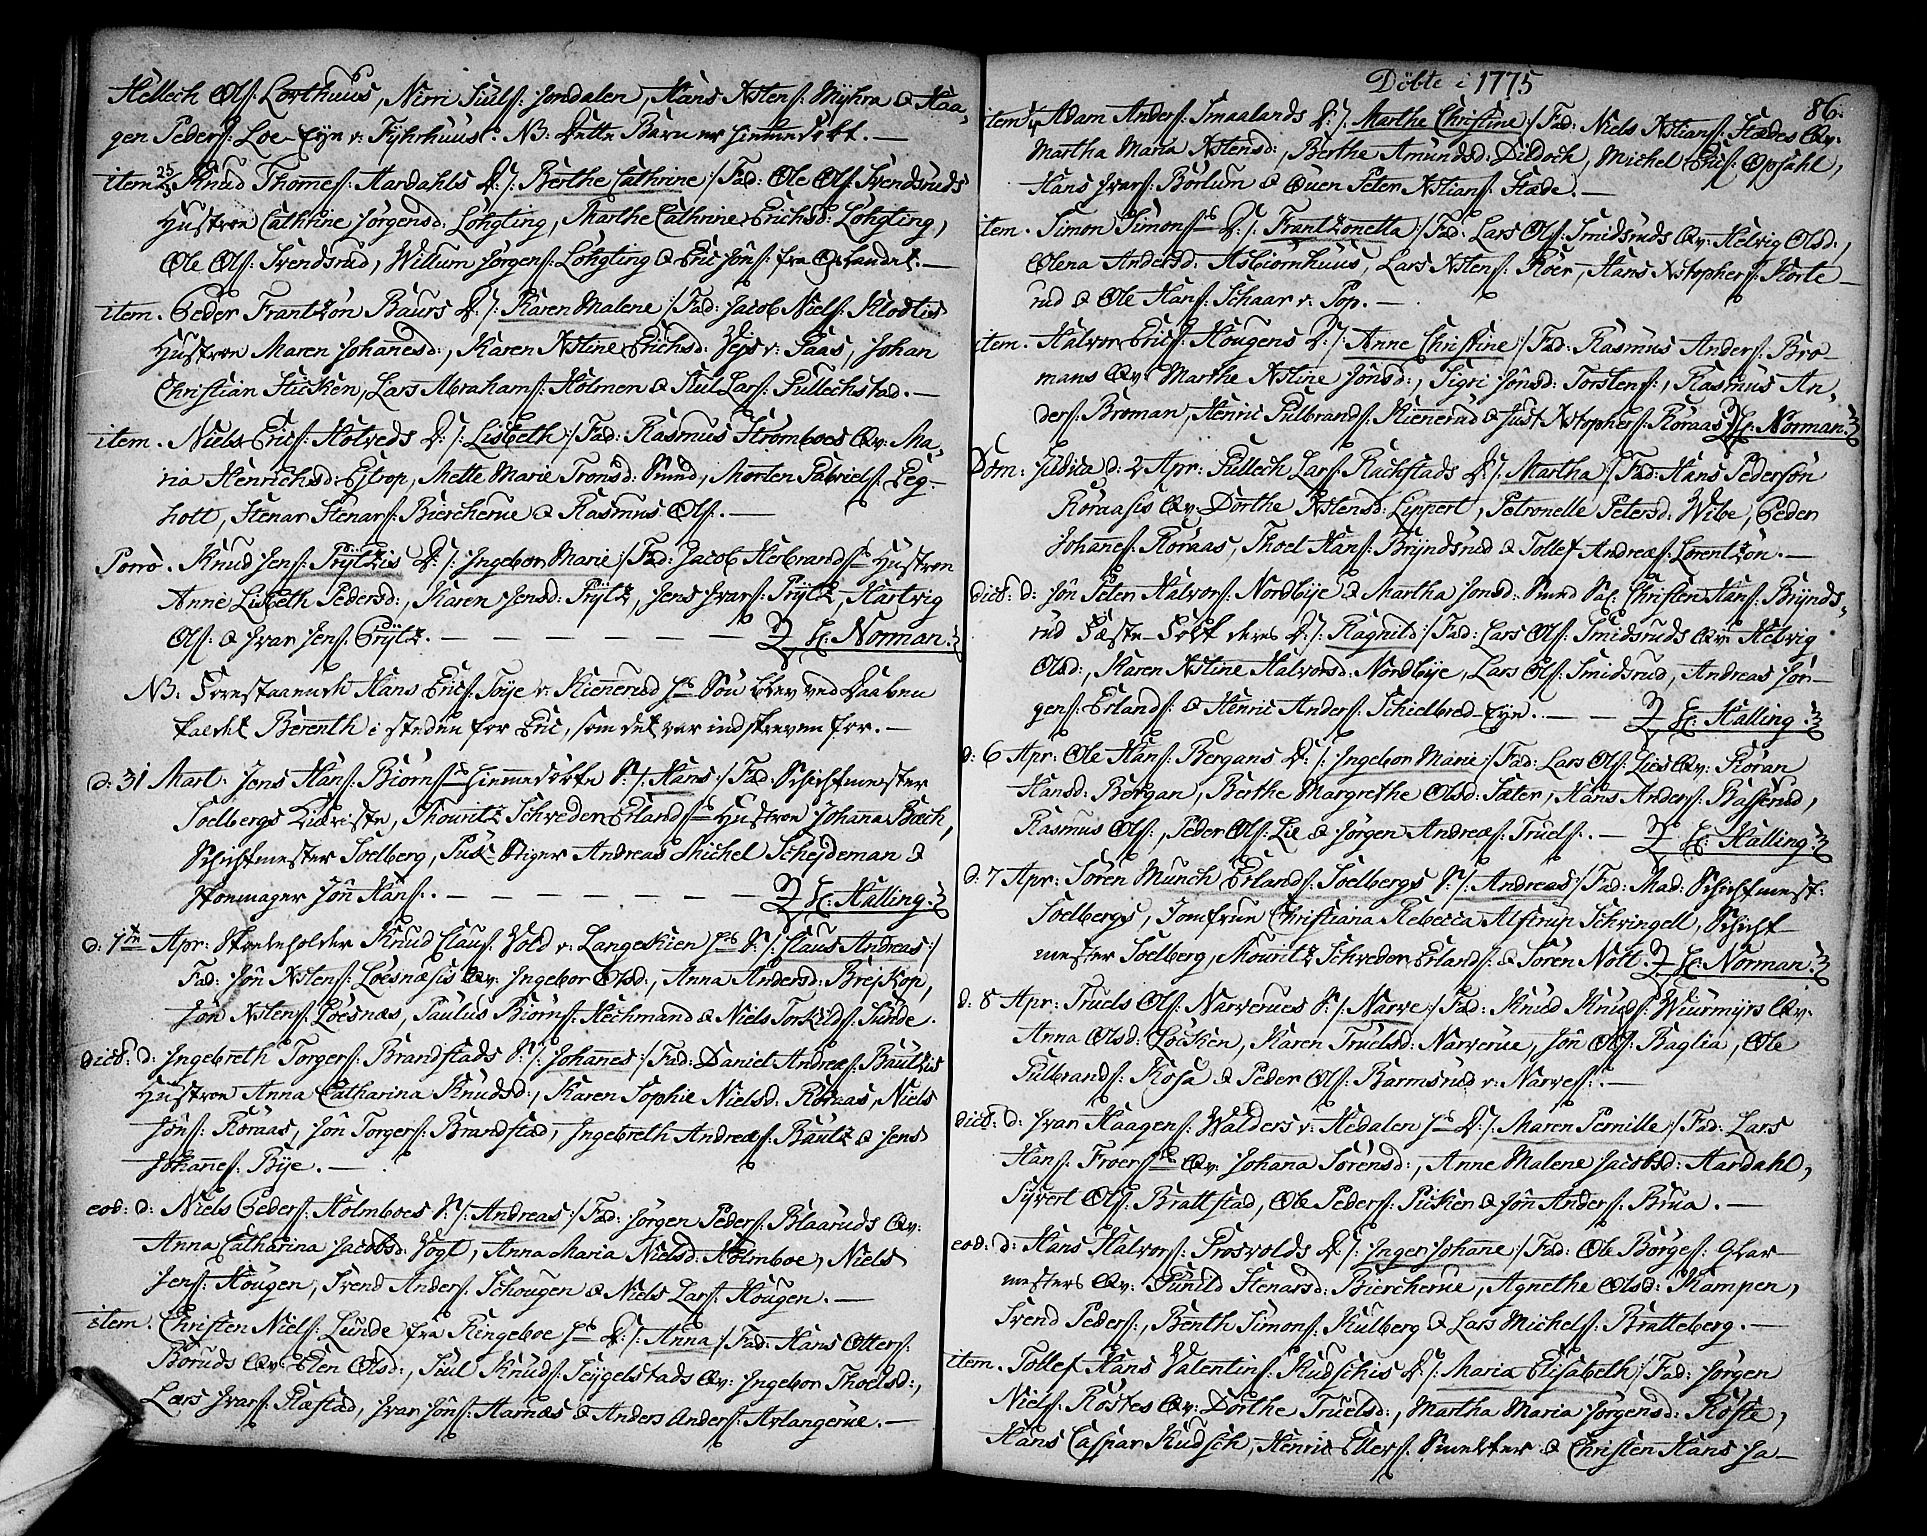 Hellech Ols: Lorthuus, Nirri Juls: Jondalen, Hans Xstens: Myhra & Haa-
gen Peders: Loe Eyn v: Fyhrhuus. NB: Dette Barn er hiemmedøbt. —
item 25 Knud Thomes: Hardahls D: /: Berthe Cathrine :/ Fad: Ole Ols: Svendsruds
Hustroe Cathrine Jörgensd: Löhgting, Marthe Cathrine Erichsd: Löhgting,
Ole Ols: Svendsrud, Willum Jörgens: Löhgting & Eric Jöns: fra Oplandet. —
item. Peder Frantzön Baurs D: /: Karen Malene :/ Fad: Jacob Niels: Klodtis
Hustroe Maren Johanesd:, Karen Xstine Erichsd: Veps v: Saas, Johan
Christian Stücken, Lars Abrahams: Holmen & Juul Lars: Gullechstad. —
item. Niels Erics: Hotveds D: /: Lisbeth :/ Fad: Rasmus Strömboes Qv: Ma-
ria Henrichsd: Estrop, Mette Marie Tronsd: Smed, Morten Gabriels: Leg-
hott, Stenar Stenars: Biercherue & Rasmus Ols: —
Porro. Knud Jens: Prÿtzis D: /: Ingebor Marie :/ Fad: Jacob Herbrands: Hustroe
Anne Lisbeth Pedersd:, Karen Jensd: Prÿtz, Jens Ivars: Prÿtz, Hartvig
Ols: & Ivar Jens: Prÿtz. — — — — — — H: Norman.
NB: Forestaaende Hans Erics: Foÿe v: Kiennerud hs Sön blev ved Daaben
kaldet Berenth i steden for Eric, som det var indskreven for. —
d: 31 Mart: Jens Hans: Biörns: hiemmedöbte S: /: Hans :/ Fad: Schichtmester
Soelbergs Kiæreste, Mouritz Schreder Erlands: Hustroe Johana Bæch,
Schichtmester Soelberg, Puk Stiger Andreas Michel Scheÿdeman &
Skomager Jön Hans: — — — — — — H: Halling.
d: 7de Apr: Skoleholder Knud Claus: Vold v: Langeskien hs S: /: Claus Andreas :/
Fad: Jön Xstens: Löesnæsis Qv: Ingebor Olsd:, Anna Andersd: Breskop,
Jön Xstens: Löesnæs, Paulus Biörns: Hechmand & Niels Torkilds: Sunde.
dict: d: Ingebreth Torgers: Brandstads S: /: Johanes :/ Fad: Daniel Andreæs: Bautzis
Hustroe Anna Catharina Knudsd:, Karen Sophie Nielsd: Roraas, Niels
Jöns: Röraas, Jön Torgers: Brandstad, Ingebreth Andreæs: Bautz & Jens
Johanes: Bÿe. —
eod: d: Niels Peders: Holmboes S: /: Andreas :/ Fad: Jörgen Peders: Blaaruds Qv:
Anna Catharina Jacobsd: Vogt, Anna Maria Nielsd: Holmboe, Niels
Jens: Hougen, Svend Anders: Schougen & Niels Lars: Hougen. —
item. Christen Niels: Lunde fra Ringeboe hs D: /: Anna :/ Fad: Hans Otters:
Boruds Qv: Elen Olsd:, Juul Knuds: Teÿgelstads Qv: Ingebor Thoelsd:,
Lars Ivars: Plæstad, Ivar Jöns: Aarnæs & Anders Anders: Aslangerue. —
Döbte i 1775
86.
item Adam Anders: Smaalands D: /: Marthe Christine :/ Fad: Niels Xstians: Stædes Qv:
Martha Maria Xstensd:, Berthe Amundsd: Dildoch, Michel Erics: Opsahl,
Hans Ivars: Börlum & Ouen Peter Xstians: Stæde. —
item. Simon Simons: D: /: Frantzonetta :/ Fad: Lars Ols: Smidsruds Qv: Helvig Olsd:,
Olena Andersd: Asbiornhuus, Lars Xstens: Röer, Hans Xstophers: Korte-
rud & Ole Hans: Schaar v: Pop. —
item. Halvor Erics: Hougens D: /: Anne Christine :/ Fad: Rasmus Anders: Bro-
mans Qv: Marthe Xstine Jönsd:, Sigri Jönsd: Torstens:, Rasmus An-
ders: Broman, Henric Gulbrands: Kiennerud & Just Xstophers: Röraas H: Norman.
Dom: Judica d: 2 Apr: Gullech Lars: Rachstads D: /: Martha :/ Fad: Hans Pedersön
Röraasis Qv: Dorthe Xstensd: Lippert, Petronelle Petersd: Wibe, Peder
Johanes: Röraas, Thoel Hans: Brÿndsrud & Tollef Andreæs: Lorentzön. —
dict: d: Jön Peter Halvors: Nordbÿe & Martha Jonsd: Smed Sal: Christen Hans: Brÿnds-
rud Fæste-Folk deres D: /: Ragnild :/ Fad: Lars Ols: Smidsruds Qv: Helvig
Olsd:, Karen Xstine Halvorsd: Nordbÿe, Lars Ols: Smidsrud, Andreas Jör-
gens: Erlands: & Henric Anders: Schielbred-Eÿe. — — H: Halling.
d: 6 Apr: Ole Hans: Bergans D: /: Ingebor Marie :/ Fad: Lars Ols: Lies Qv: Röran
Hansd: Bergan, Berthe Margrethe Olsd: Sæter, Hans Anders: Basserud,
Rasmus Ols:, Peder Ols: Lie & Jörgen Andreæs: Truels: — H: Halling.
d: 7 Apr: Sören Munch Erlands: Soelbergs S: /: Andreas :/ Fad: Mad: Schichtmest:
Soelbergs, Jomfrue Christiana Rebecca Alstrup Schvingell, Schicht-
mester Soelberg, Mouritz Schreder Erlands: & Sören Nött. H: Norman.
d: 8 Apr: Truels Ols: Narverues S: /: Narve :/ Fad: Knud Knuds: Wiurmyrs Qv:
Anna Olsd: Löcken, Karen Truelsd: Narverue, Jön Ols: Baglia, Ole
Gulbrands: Kosa & Peder Ols: Barmsrud v: Narves: —
dict: d: Ivar Haagens: Walders v: Hedalen hs D: /: Maren Pernille :/ Fad: Lars
Hans: Froers: Qv: Johana Sörensd:, Anne Malene Jacobsd: Aardahl,
Syvert Ols: Brattstad, Ole Peders: Picken & Jön Anders: Brua. —
eod: d: Hans Halvors: Prosvolds D: /: Inger Johanne :/ Fad: Ole Börges: Glar-
mesters Qv: Gunild Stenarsd: Biercherue, Agnethe Olsd: Kampen,
Svend Peders:, Benth Simons: Kulberg & Lars Michels: Bratteberg. —
item. Tollef Hans Valentins: Kudschis D: /: Maria Elisabeth :/ Fad: Jörgen
Niels: Röstes Qv: Dorthe Truelsd:, Martha Maria Jörgensd: Röste,
Hans Caspar Kudsch, Henric Ellers: Smelter & Christen Hans: Ja-